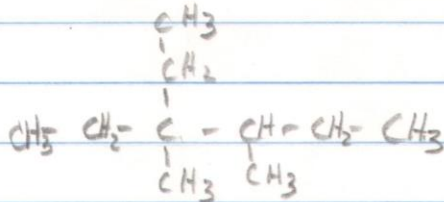 CH3
CH2
CH3- CH2- C - CH- CH2- CH3
CH3 CH3